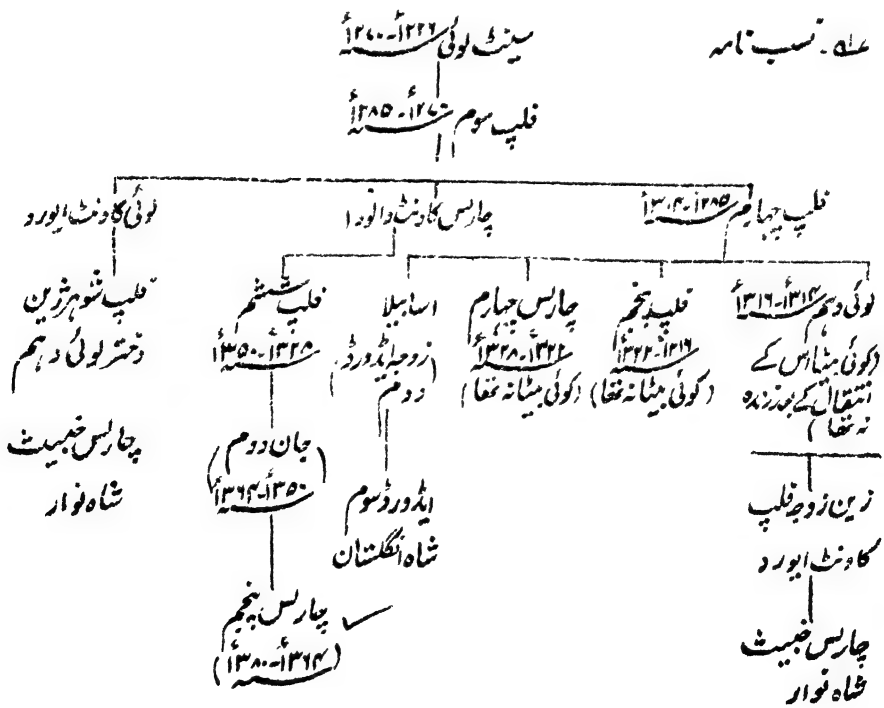 ۵۱۷- نسب نامہ
سینٹ لوئی ۱۲۲۶ء-۱۲۷۰ء
فلپ سوم ۱۲۷۰ء-۱۲۸۵ء
فلپ چہارم ۱۲۸۵ء-۱۳۱۴ء
چارلس کاونٹ والورا
لوئی کاونٹ ایورد
لوئی دہم ۱۳۱۴ء-۱۳۱۶ء
(کوئی بیٹا اس کے
انتقال کے بعد زندہ
نہ تھا)
فلپ پنجم
۱۳۱۶ء-۱۳۲۲ء
(کوئی بیٹا نہ تھا)
چارلس چہارم
۱۳۲۲ء-۱۳۲۸ء
(کوئی بیٹا نہ تھا)
اسابیلا
(زوجہ ایڈورڈ
دوم)
فلپ ششم
۱۳۲۸ء-۱۳۵۰ء
فلپ شوہر ژین
دختر لوئی دہم
چارلس خبیث
شاہ نوار
جان دوم
(۱۳۵۰ء-۱۳۶۴ء)
ایڈورڈ سوم
شاہ انگلستان
ژین زوجہ فلپ
کاونٹ ایورد
چارلس پنجم
(۱۳۶۴ء-۱۳۸۰ء)
چارلس خبیث
شاہ نوار